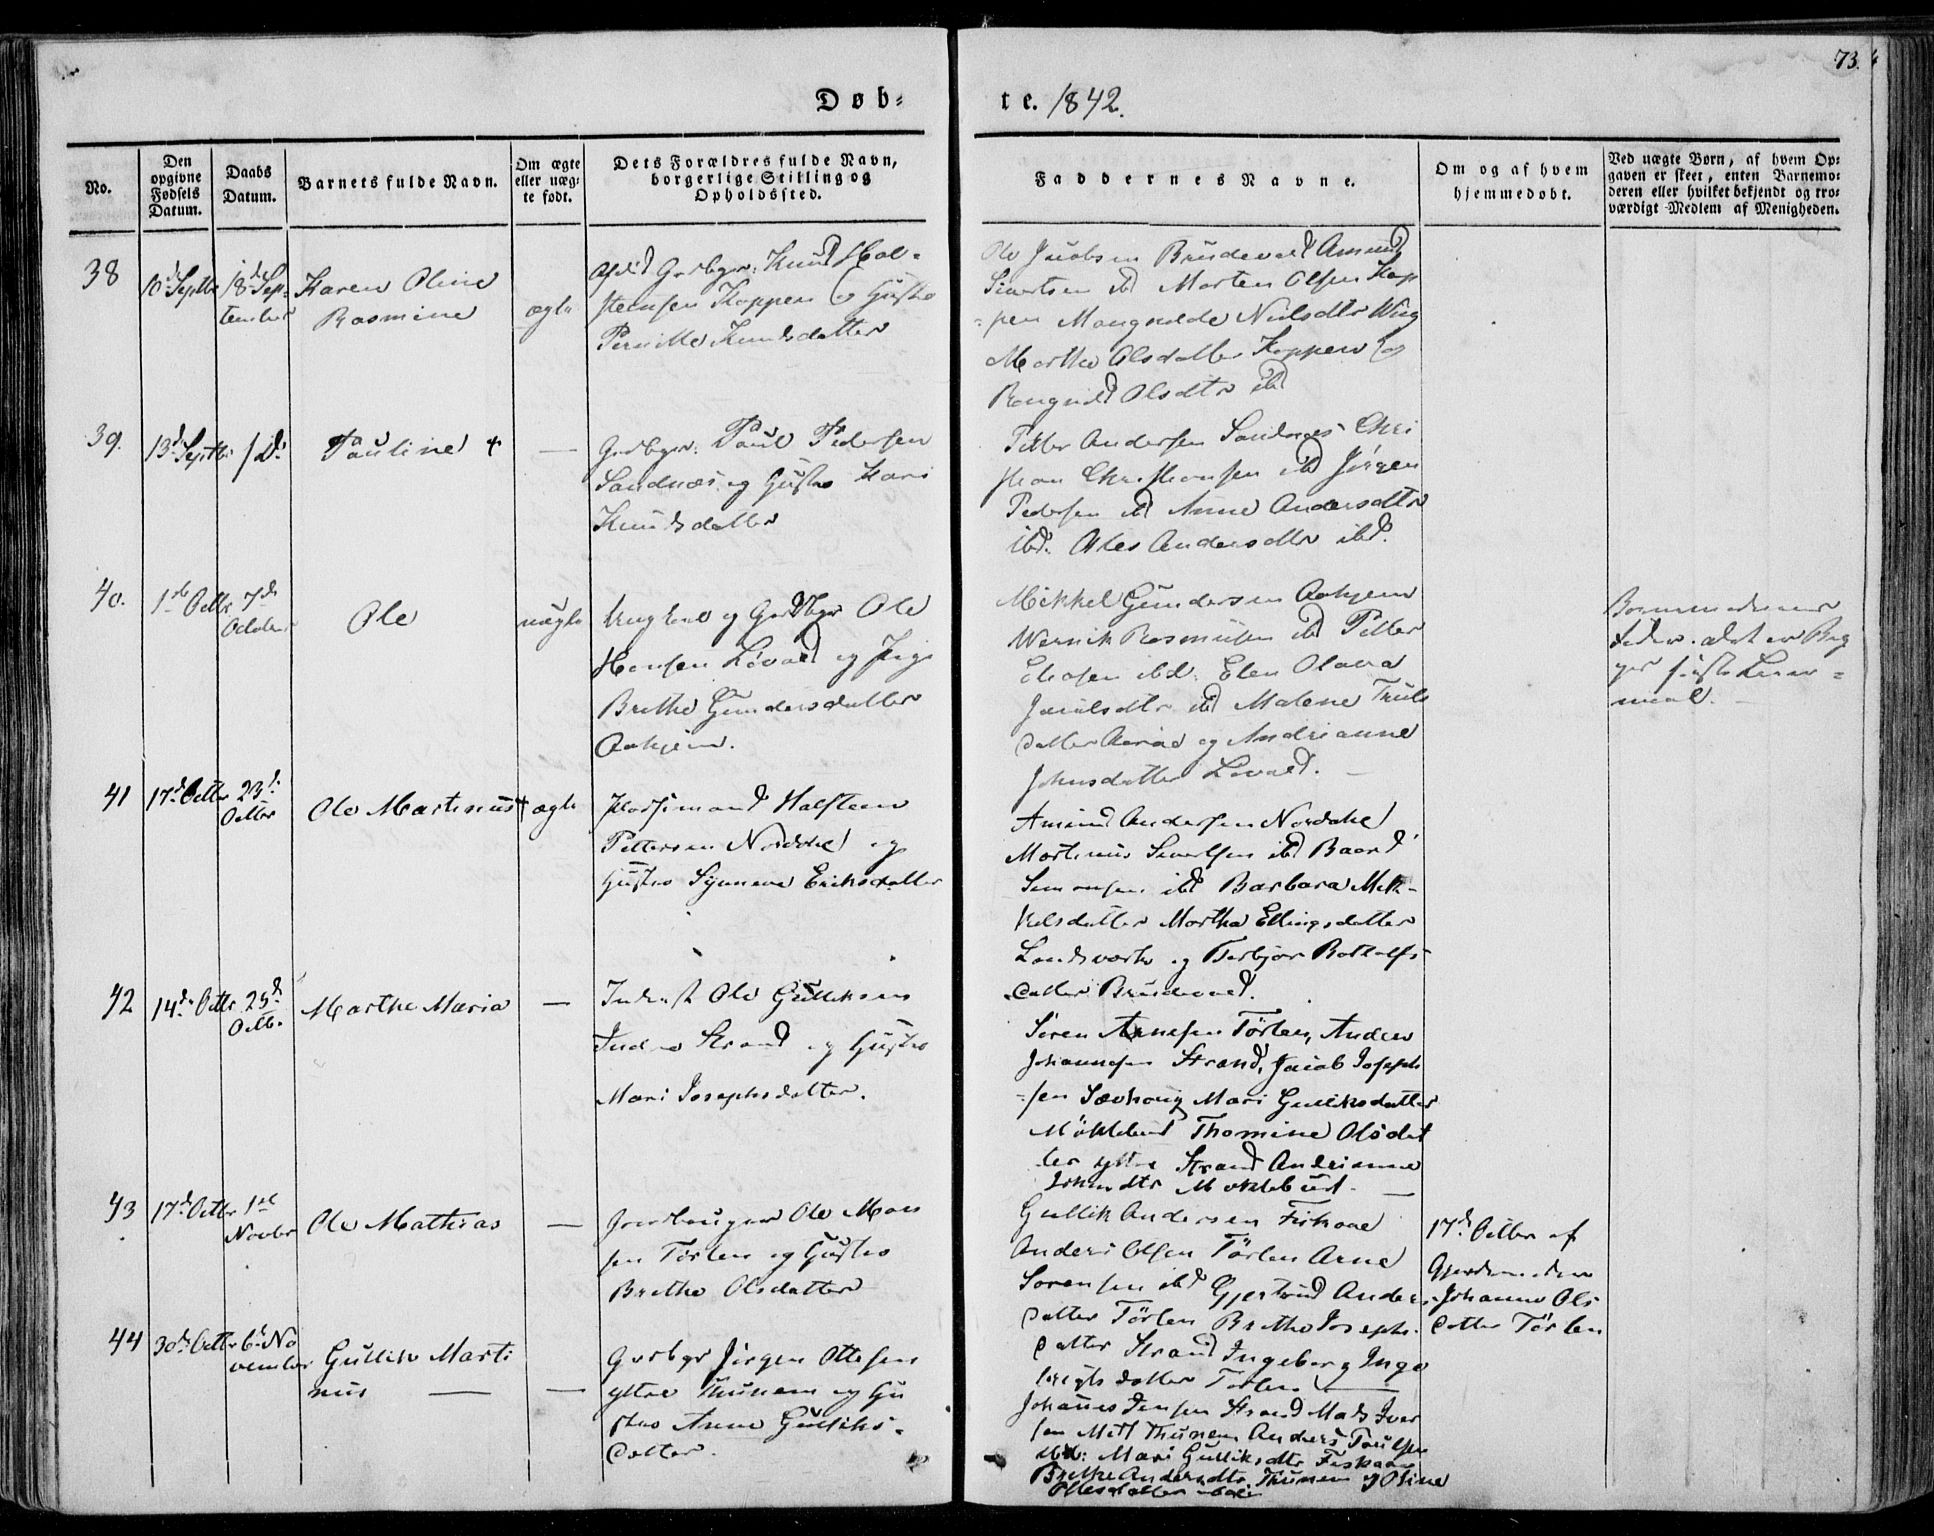 73.
Døb=
te. 1842.
No.
Den opgivne Fødsels Datum.
Daabs Datum.
Barnets fulde Navn.
Om ægte eller uæg-te født.
Dets Forældres fulde Navn, borgerlige Stilling og Opholdssted.
Faddernes Navne.
Om og af hvem hjemmedøbt.
Ved uægte Børn, af hvem Op-gaven er skeet, enten Barnemo-deren eller hvilket bekjendt og tro-værdigt Medlem af Menigheden.
38
10d Septbr
18d Sep-
tember
Karen Oline
Rasmine
ægte
Gdbgr: Knud Hol-
stensen Koppen og Hustro
Pernille Knudsdatter
Ole Jacobsen Brudevold Amund
Sivertsen ibd Morten Olsen Kop
-pen Nielsdtr Wiig
Marthe Olsdatter Koppen og
Rangnild Olsdtr ibd
39.
13d Septbr
/ D:
Pauline +
—
Gdbgr: Paul Pedersen
Sandnæs og Hustro Kari
Knudsdatter
Petter Andersen Sandnæs Chri
sthian Christhiansen ibd Jørgen
Pedersen ibd Anne Andersdtr
ibd. Andersdtr ibd.
40.
1ste Octbr
7de
October
Ole
uægte
Ungkarl og Gdbgr Ole
Hansen Løvold og Pige
Brethe Gundersdatter
Aahjem.
Mikkel Gundersen Aahjem
Rasmussen ibd Petter
ibd. Elen Olava
Jacobsdtr ibd Malene Truls
datter og Andrianne
Johnsdatter Løvold. —
Barnemoderens
det er Beg
ges første Leier=
maal.
41
17d Octbr
23d
Octbr
Ole Martinus +
ægte
Halsten
Pettersen Nordahl og
Hustro Synneve Eriksdatter
Amund Andersen Nordahl
Martinus Sivertsen ibd Baard
Simonsen ibd Barbara Mik-
kelsdatter Martha Ellingsdatter
Landsverk og Torbjør Botholfs
datter Brudevold.
42
14d Octbr
23d
Octb.
Marthe Maria
—
Inderst Ole Gulliksen
Indre Strand og Hustro
Mari Josephsdatter.
Søren Arnesen Tørlen, Anders
Johannesen Strand, Jacob Joseph
-sen Mari Gulliksdatter
Møklebust Thomine Olsdat
ter yttre Strand Andrianne
Møklebust. —
43
17d Octbr
1ste
Novbr
Ole Mathias
—
Jordbruger Ole Mon
sen Tørlen og Hustro
Brethe Olsdatter
Gullik Andersen Fiskaae
Anders Olsen Tørlen Arne
Sørensen ibd Gjertrud Anders
datter Tørlen Brethe Josephs.
datter Strand Ingeborg Inge
brigtsdatter Tørlen —
17d Octbr af
Gjordemoderen
Johanne Ols
datter Tørlen
44
30d Octbr
6d No
vember
Gullik Marti
nus —
—
Gdbgr Jørgen Ottesen
yttre Thunem og Hu
stro Anne Gulliks-
datter.
Johannes Jensen Strand Mads Iver
sen Mitt Thunem Anders Paulsen
ibd: Mari Gulliksdtr Fiskaae
Brethe Andersdtr Thunem og Oline
Ottesdatter ibd.